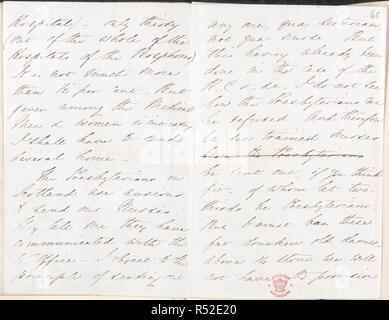 Hospital). Only thirty
(out of the whole of the
Hospitals of the Bosphorus)
It is not much more
than 16 per cent. But
given among the Medical
Men & women
I shall have to send
several home.
The Presbyterians in
Scotland are anxious
to send out Nurses.
They tell me they have
communicated with the
W. Office. I object to the
principle of sending out
any one, qua sectarian
not qua Nurse. But
this having already been
done in the case of the
R.C.s, &c, I do not see
how the Presbyterians can
be refused. And therefore
let six trained Nurses
from the Presbyterians
be sent out, if you think
fit, of whom let two
thirds be Presbyterians
But I must bar these
fat drunken old dames
above 14 stone we will
not have. The provision
alamy
R52E20
www.alamy.com